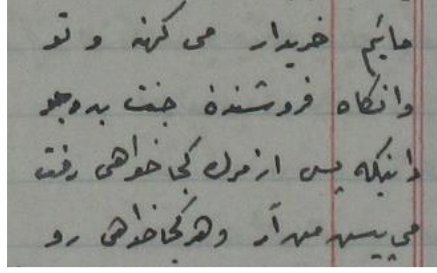 مائیم خریدار می کهنه و نو
وانگاه فروشندهٔ جنت بدو جو
دانیکه پس از مرگ کجا خواهی رفت
می پیش من آر و هر کجا خواهی رو